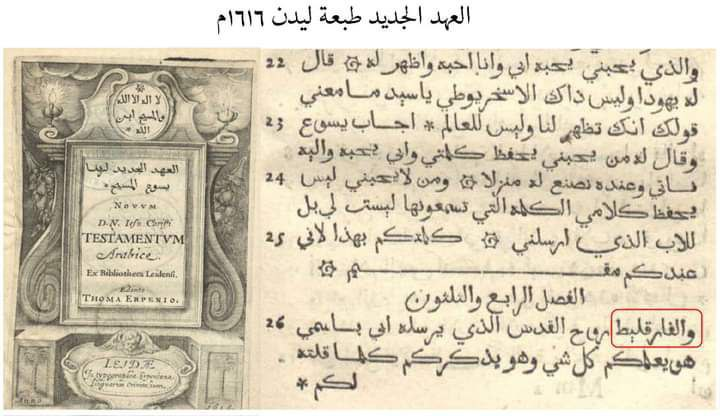 العهد الجديد طبعة ليدن ١٦١٦م
لا اله الا الله
والمسيح ابن
الله
العهد الجديد لربنا
يسوع المسيح
NOVVM
D.N. Iesu Christi
TESTAMENTVM
Arabice.
Ex Bibliotheca Leidensi.
Edente
THOMA ERPENIO.
LEIDÆ
In typographia Erpeniana
Linguarum Orientalium.
Anno
22 والذي يحبني يحبه ابي وانا احبه واظهر له ۞ قال
له يهودا وليس ذاك الاسخريوطي ياسيد ما معني
23 قولك انك تظهر لنا وليس للعالم * اجاب يسوع
وقال له من يحبني يحفظ كلمتي وابي يحبه واليه
24 ناتي وعنده نصنع له منزلا ۞ ومن لا يحبني ليس
يحفظ كلامي الكلمه التي تسمعونها ليست لي بل
25 للاب الذي ارسلني ۞ كلمتكم بهذا لاني
عندكم مقيم ۞
الفصل الرابع والثلثون
26 والفارقليط روح القدس الذي يرسله ابي باسمي
هو يعلمكم كل شي وهو يذكركم كلما قلته
لكم *